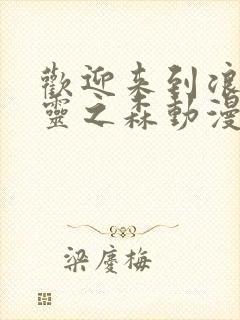 歡迎来到浪
靈之森動漫
梁慶梅